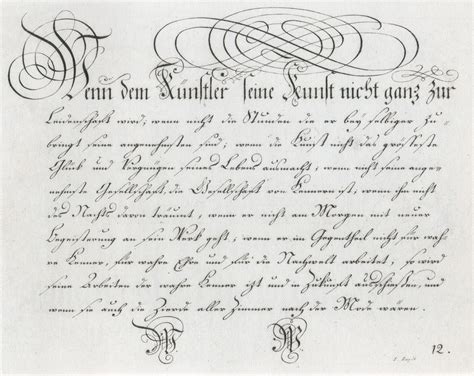 Wenn dem Künstler seine Kunst nicht ganz zur
Leidenschaft wird; wenn nicht die Stunden die er bey selbiger zu-
bringt seine angenehmsten sind; wenn die Kunst nicht das grösseste
Glück und Vergnügen seines Lebens ausmacht, wenn nicht seine ange-
nehmste Gesellschaft, die Gesellschaft von Kennern ist, wenn ihn nicht
des Nachts davon träumt, wenn er nicht am Morgen mit neuer
Begeisterung an sein Werk geht, wenn er im Gegentheil nicht für wah-
re Kenner, für wahre Ehre und für die Nachwelt arbeitet, so wird
seine Arbeiten der wahre Kenner izt und in Zukunft ausschiessen, und
wenn sie auch die Zierde aller Zimmer nach der Mode wären.
12.